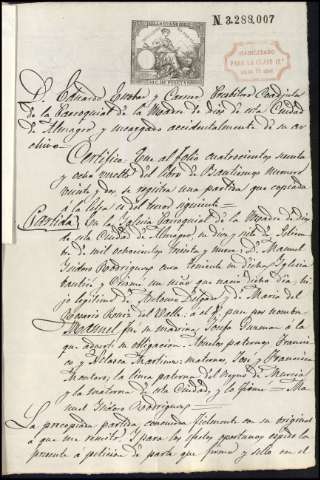 N. 3.288,007
D. Eduardo Escobar y Carneo Presbitero Coadjutor
de la Parroquial de la Madre de dios de esta Ciudad
de Almagro y encargado accidentalmente de su ar-
chivo
Certifico: Que al folio cuatrocientos sesenta
y ocho vuelto del libro de Bautismos numero
veinte y dos se registra una partida que copiada
a la letra es del tenor siguiente =
Partida) En la Iglesia Parroquial de la Madre de dios
de esta Ciudad de Almagro en diez y seis de
de mil ochocientos treinta y nueve: D. Manuel
Isidoro Rodriguez cura teniente en dicha Iglesia
bautizó y Crismó un niño que nació dicho dia hi-
jo legitimo de Antonio Delgado y de Maria del
Rosario del Valle, á el q.e puso por nombre
Manuel fue su madrina Josefa Guzman a la
que advertí su obligacion. Abuelos paternos Francis-
co y Martinez: maternos, José y Francisca
Montero: la linea paterna del Reyno de Murcia
y la materna de esta Ciudad, y lo firmé = Ma-
nuel Isidoro Rodriguez
La precopiada partida, concuerda fielmente con su original
á que me remito. Y para los efectos oportunos espido la
presente a peticion de parte que firmo y sello en el